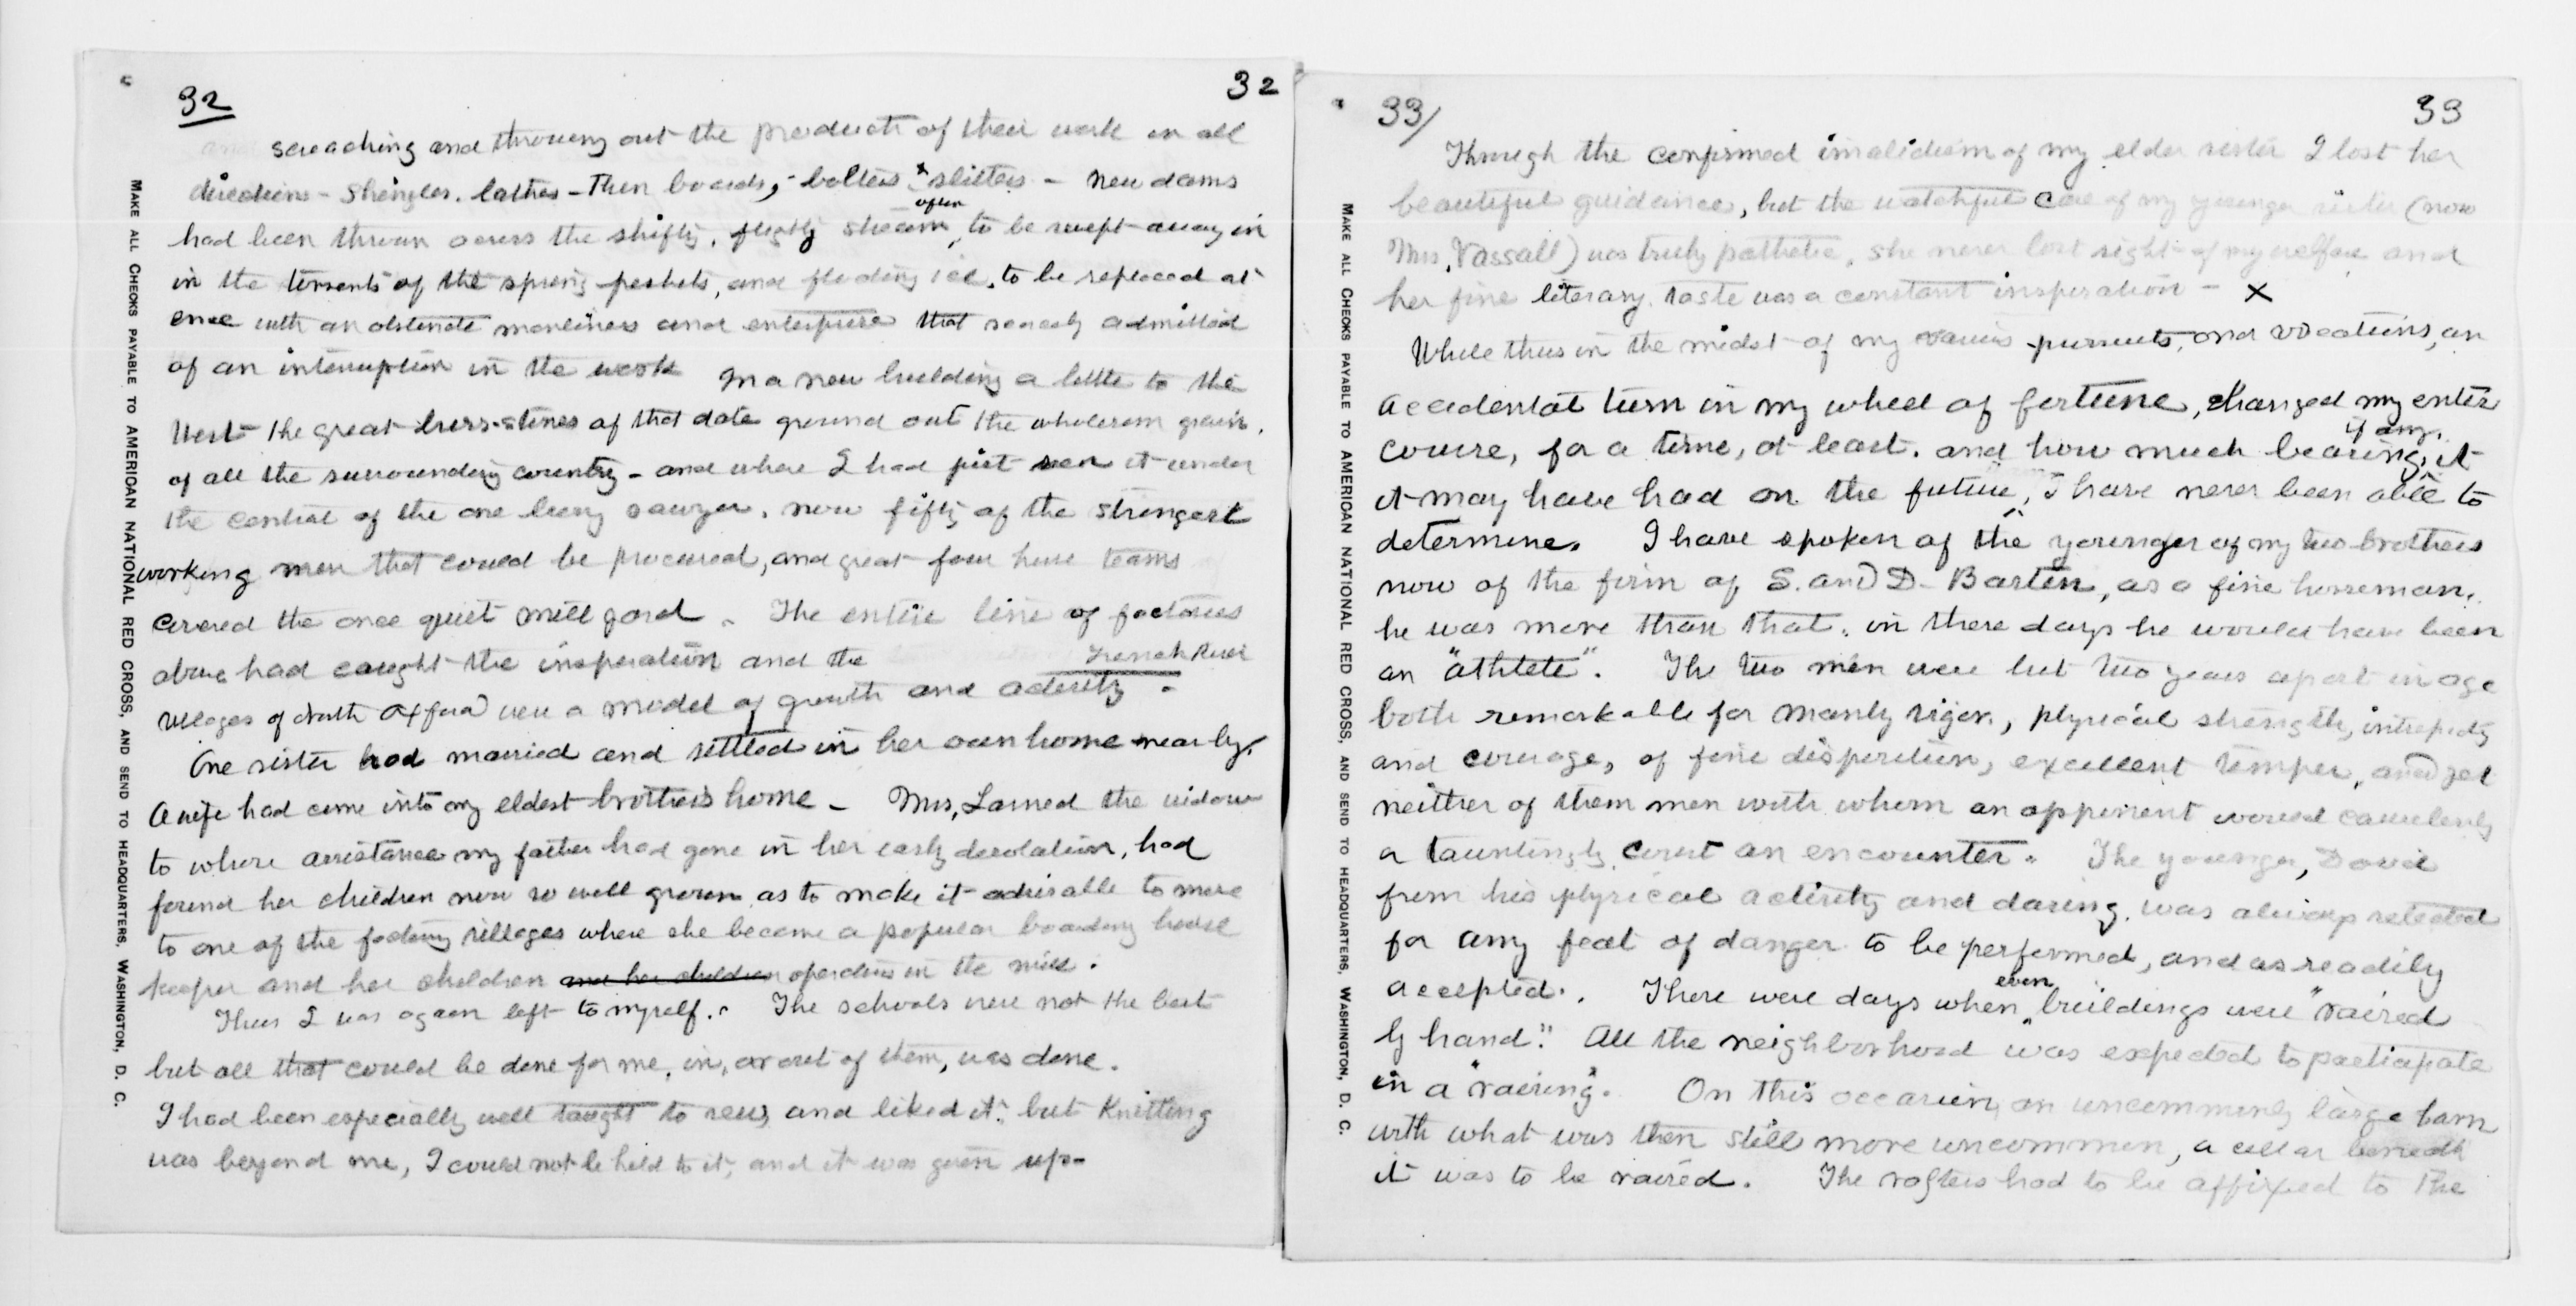 32
32
and screaching and throwing out the products of their work in all
directions - Shingles. lathes - Then boards, - bolters & slitters - New dams
often
had been thrown across the shifty, flighty stream, to be swept away in
in the torrents of the spring freshets, and floating ice, to be replaced at
once with an obstinate manliness and enterprise that scarcely admitted
of an interruption in the work In a new building a little to the
West the great burr-stones of that date ground out the wholesom grain.
of all the surrounding country - and where I had just seen it under
the control of the one being sawyer, now fifty of the strongest
working men that could be procured, and great four horse teams
covered the once quiet mill yard. The entire line of factories
above had caught the inspiration and the French River
villages of North Oxford were a model of growth and activity.
One sister had married and settled in her own home near by,
A wife had come into my eldest brothers home - Mrs, Larned the widow
to whose assistance my father had gone in her early desolation, had
found her children now so well grown as to make it advisable to move
to one of the factory villages where she became a popular boarding house
keeper and her children and her children operatives in the mills.
Thus I was again left to myself. The schools were not the best
but all that could be done for me, in, or out of them, was done.
I had been especially well taught to sew, and liked it, but Knitting
was beyond me, I could not be held to it, and it was given up-
MAKE ALL CHECKS PAYABLE TO AMERICAN NATIONAL RED CROSS, AND SEND TO HEADQUARTERS, WASHINGTON, D. C.
33/
33
Through the confirmed invalidism of my elder sister I lost her
beautiful guidance, but the watchful care of my younger sister (now
Mrs, Vassall) was truly pathetic, she never lost sight of my welfare and
her fine literary taste was a constant inspiration - X
While thus in the midst of my various pursuits, and vocations, an
accidental turn in my wheel of fortune, changed my entire
if any,
course, for a time, at least. and how much bearing, it
it may have had on the future, I have never been able to
determine. I have spoken of the younger of my two brothers
now of the firm of S. and D- Barton, as a fine horseman,
he was more than that. in these days he would have been
an "athlete". The two men were but two years apart in age
both remarkable for manly vigor, physical strength, intrepidity
and courage, of fine disposition, excellent temper, and yet
neither of them men with whom an opponent would carelessly
a tauntingly court an encounter. The younger, David
from his physical activity and daring, was always selected
for any feat of danger to be performed, and as readily
accepted. There were days when even buildings were "raised
by hand". All the neighborhood was expected to participate
in a "raising". On this occasion, an uncommonly large barn
with what was then still more uncommon, a cellar beneath
it was to be raised. The rafters had to be affixed to the
MAKE ALL CHECKS PAYABLE TO AMERICAN NATIONAL RED CROSS, AND SEND TO HEADQUARTERS, WASHINGTON, D. C.